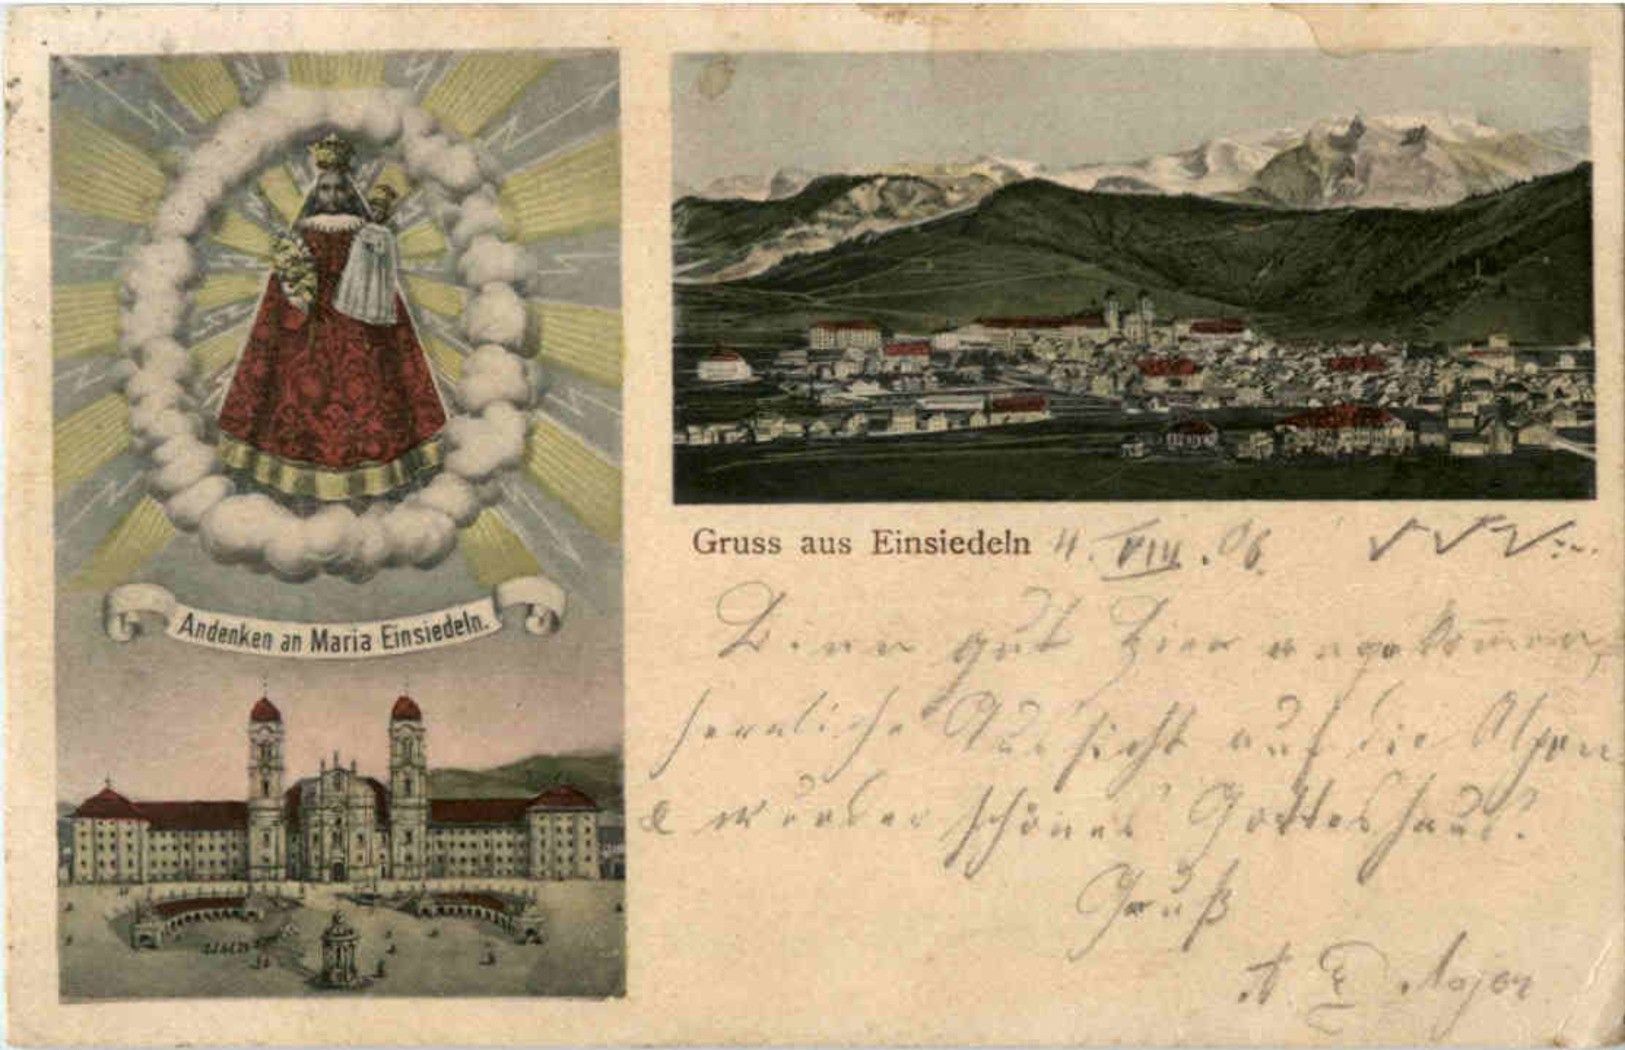 Andenken an Maria Einsiedeln.
Gruss aus Einsiedeln 4. VIII. 06.
Binn gut hier angekommen,
herrliche Aussicht auf die Alpen
& wunder schönes Gotteshaus!
Gruß
Majer